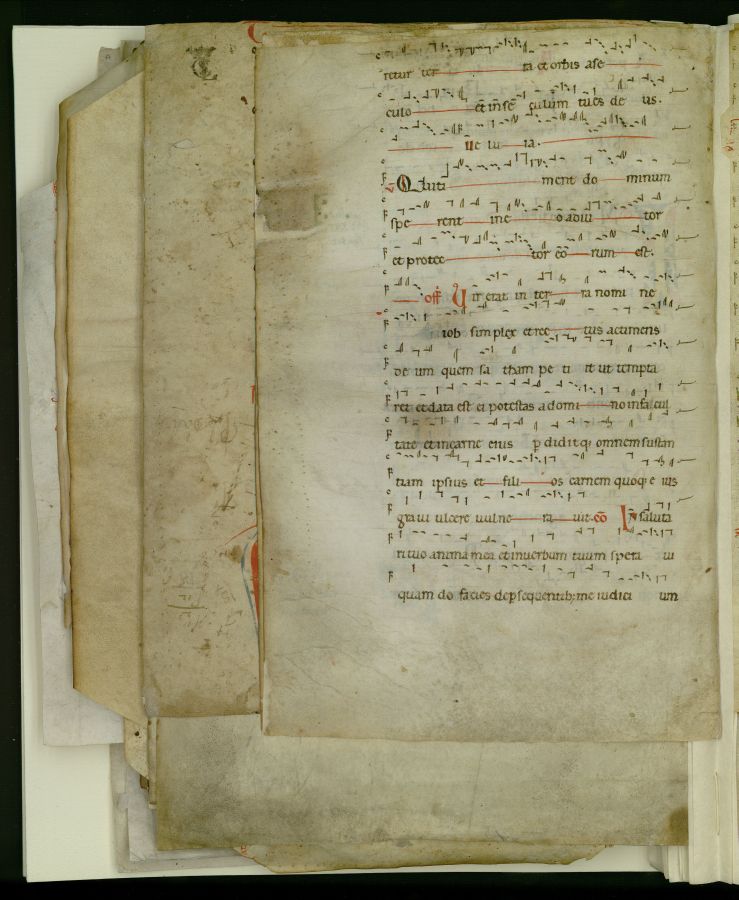 retur ter ra et orbis a se
culo et in se culum tu es de us.
ue lu ia.
Qui ti ment do minum
spe rent in e o adiu tor
et protec tor eo rum est.
off Uir erat in ter ra nomi ne
iob simplex et rec tus ac timens
de um quem sa than pe ti it ut tempta
ret et data est ei potestas a domi no in facul
tate et in carne eius p didit q; omnem substan
tiam ipsius et fili os carnem quoq; e ius
graui ulcere uulne ra uit. co In saluta
ri tuo anima mea et in uerbum tuum spera ui
quam do facies de p sequentib; me iudici um